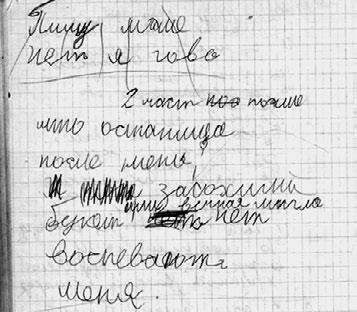 Пишу
нет я гово
2 част поэме
что останица
после меня,
засохший
букет вечная мгла нет
воспевают
меня.